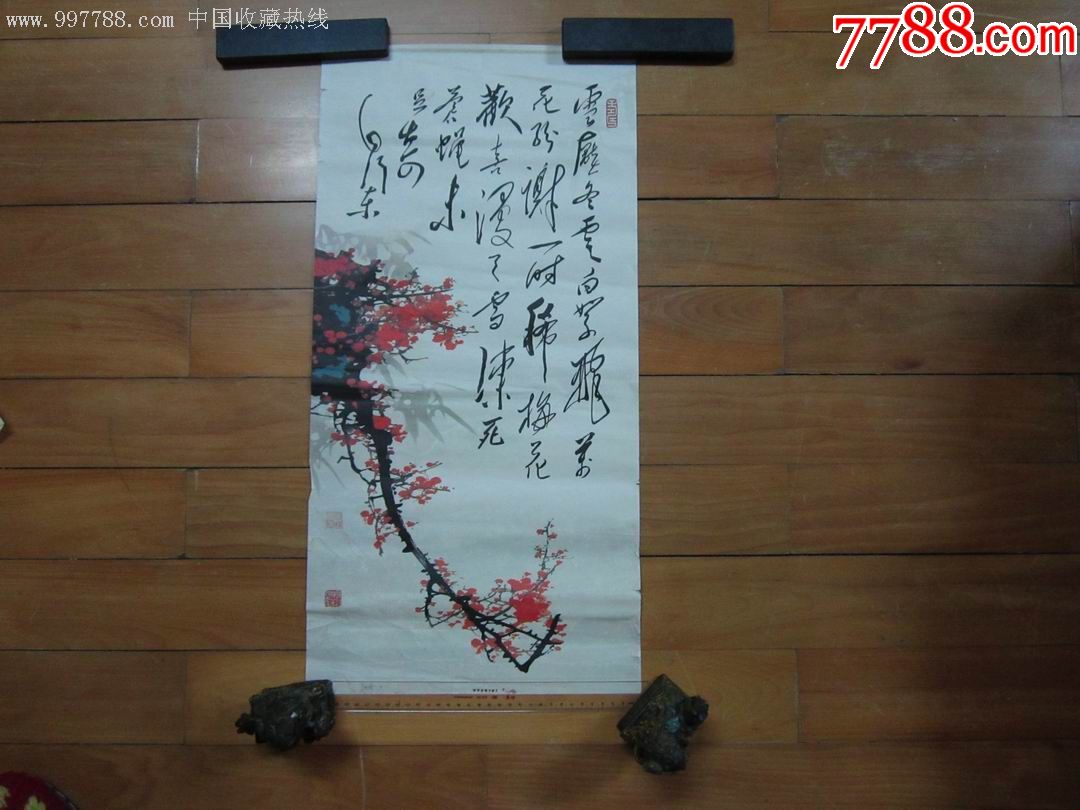 www.997788.com 中国收藏热线
7788.com
雪壓冬雲白絮飛萬
花紛謝一时稀梅花
歡喜漫天雪凍死
蒼蝇未
足奇
毛泽东